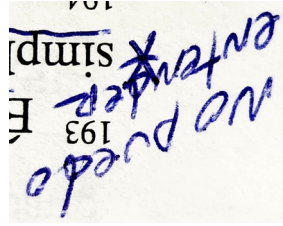 No puedo
entender
193 E
simpl
194